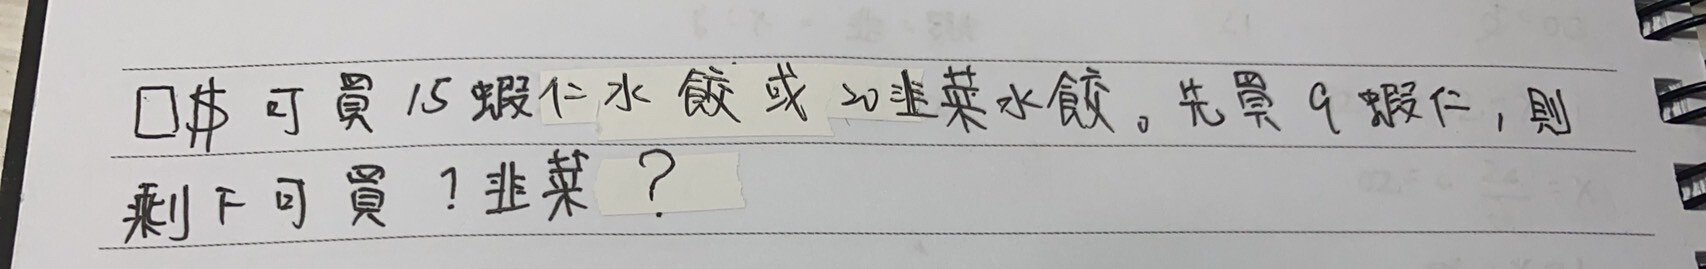 □$ 可買 15 蝦仁水餃或 20韭菜水餃。先買 9 蝦仁,則
剩下可買 ? 韭菜 ?